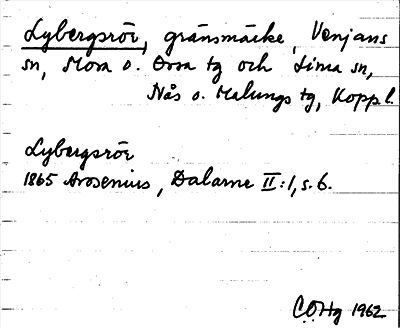 Lybergsrör, gränsmärke, Venjans
sn, Mora o. Orsa tg och Lima sn,
Nås o. Malungs tg, Koppl.
Lybergsrör
1865 Arosenius, Dalarne II:1, s. 6.
CÖHg 1962